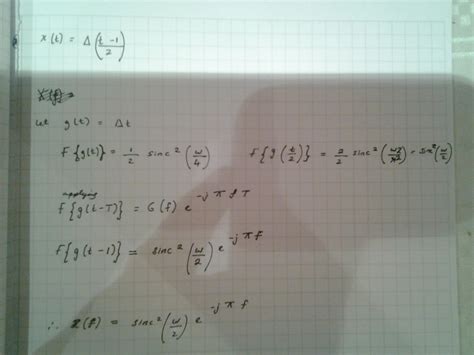 x(t) = Δ (t - 1 / 2)
let g(t) = Δt
F{g(t)} = 1/2 sinc² (ω/4) F{g(t/2)} = 2/2 sinc² (ω2/4) = sinc² (ω/2)
applying
F{g(t-T)} = G(f) e^-jπfT
F{g(t-1)} = sinc² (ω/2) e^-jπf
∴ X(f) = sinc² (ω/2) e^-jπf